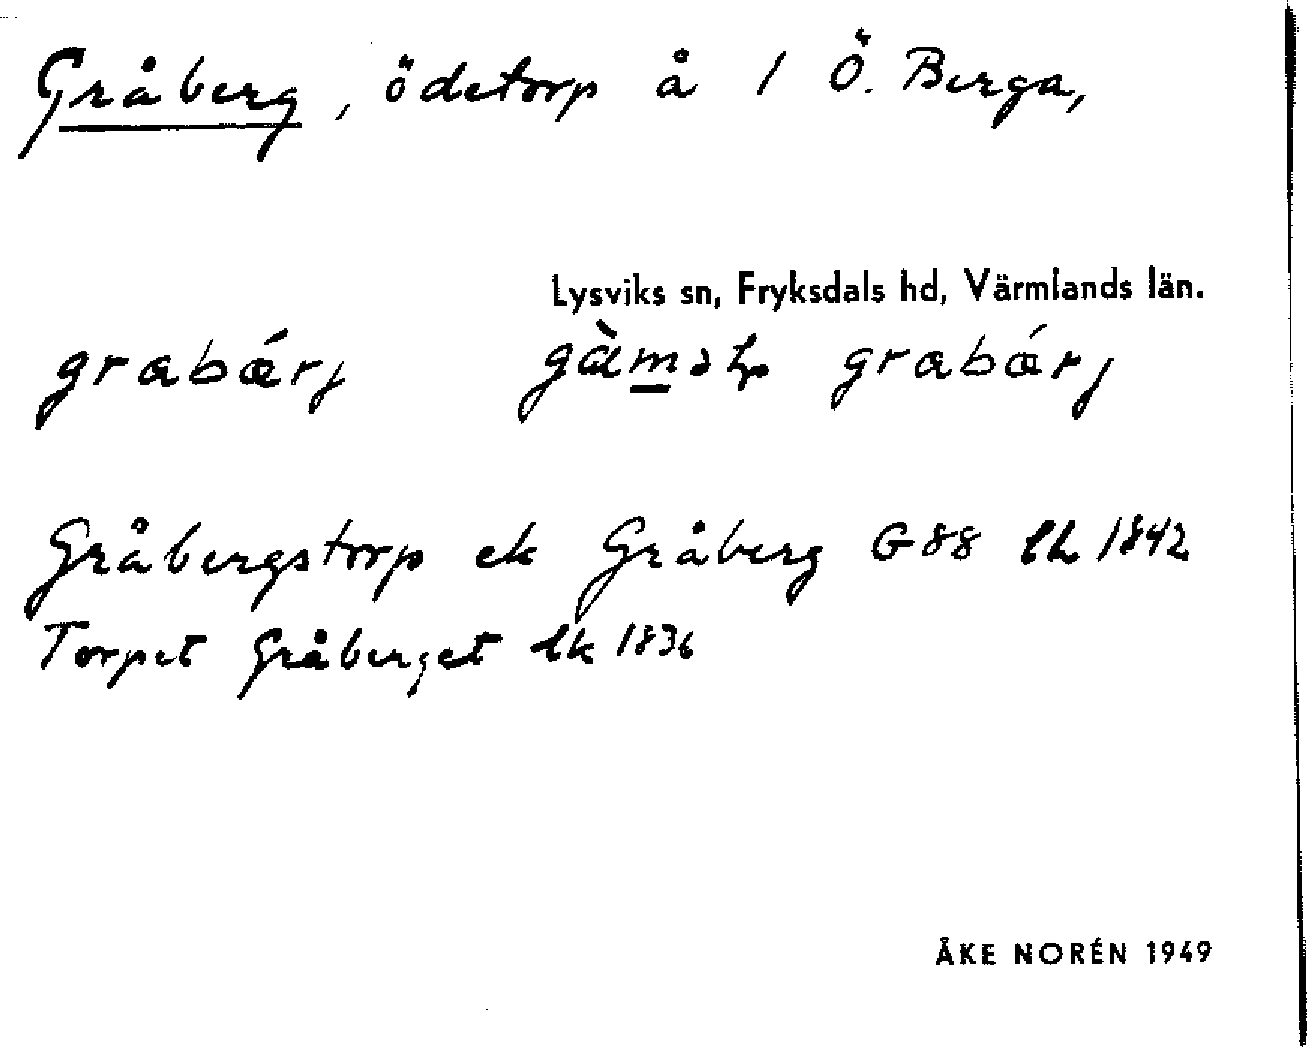 Gråberg, ödetorp å 1 Ö. Berga,
Lysviks sn, Fryksdals hd, Värmlands län.
grabǽrj grabǽrj
Gråbergstorp ek Gråberg G88 lk 1842
Torpet Gråberget lk 1836
ÅKE NORÉN 1949